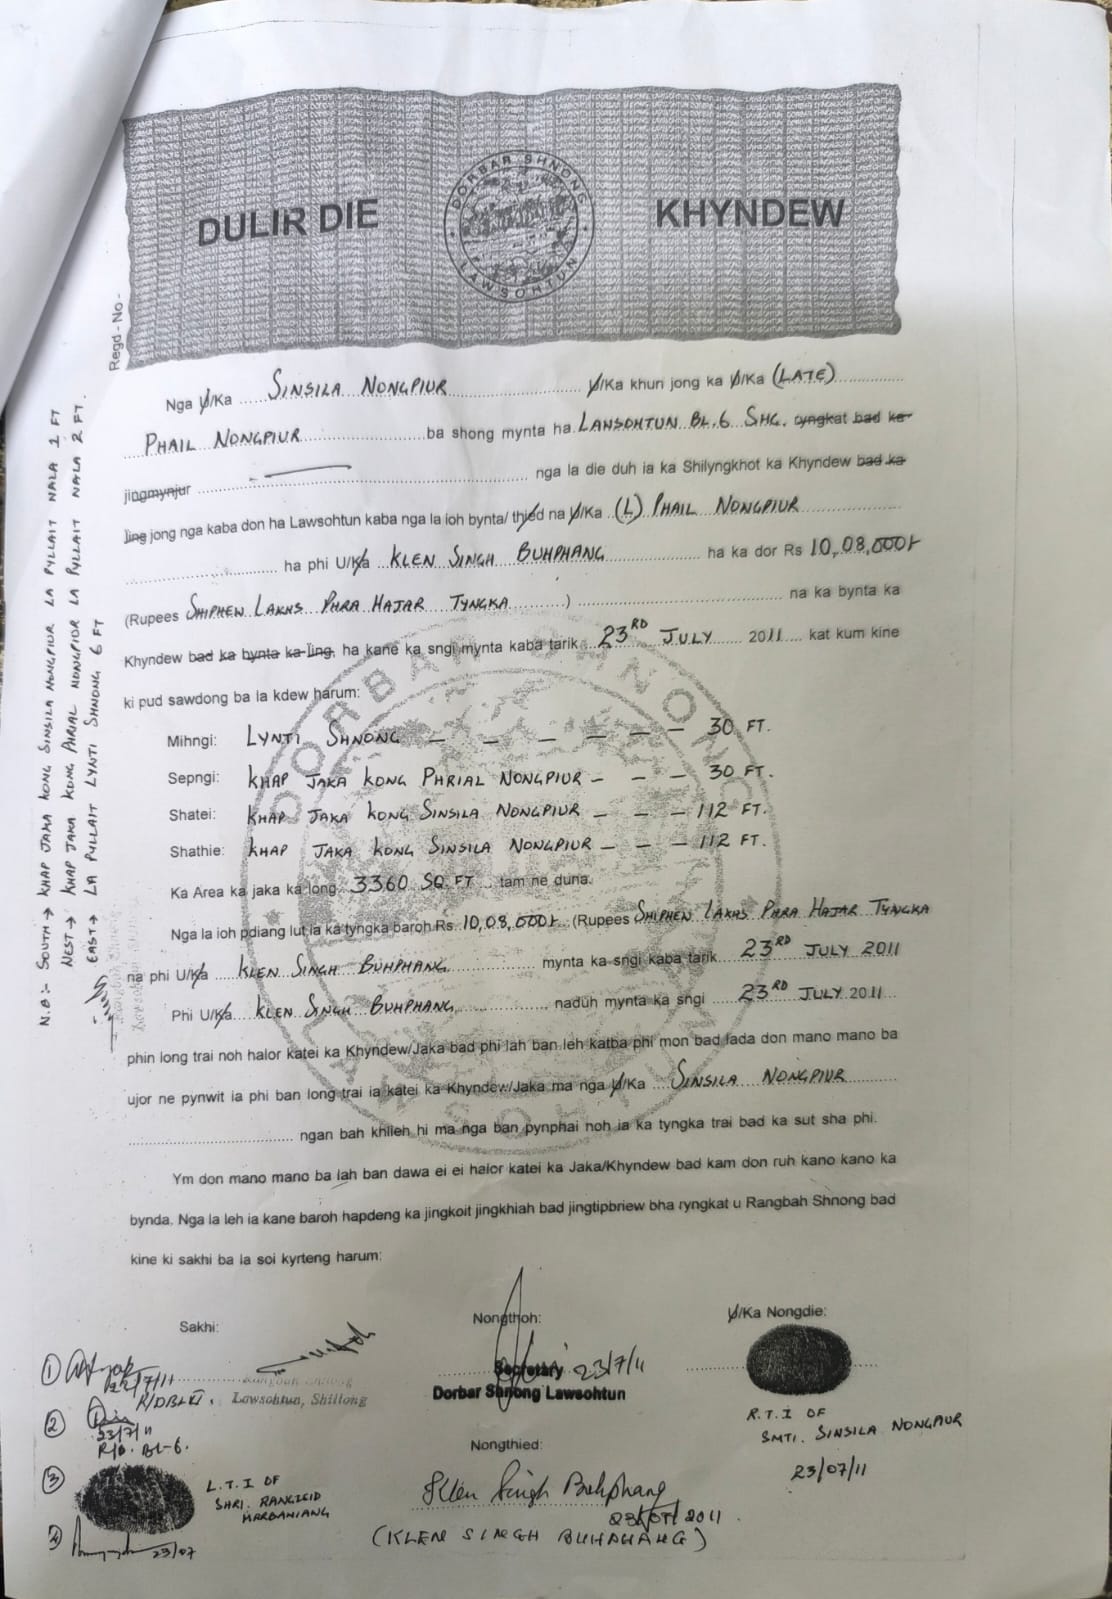 DORBAR SHNONG
LAWSOHTUN
DULIR DIE KHYNDEW
Regd - No -
Nga U/Ka SINSILA NONGPIUR U/Ka khun jong ka U/Ka (LATE)
PHAIL NONGPIUR ba shong mynta ha LAWSOHTUN BL.6 SHG. ryngkat bad ka
jingmynjur nga la die duh ia ka Shilyngkhot ka Khyndew bad ka
Ïing jong nga kaba don ha Lawsohtun kaba nga la ioh bynta/ thied na U/Ka (L) PHAIL NONGPIUR
ha phi U/Ka KLEN SINGH BUHPHANG ha ka dor Rs 10,08,000/-
(Rupees SHIPHEW LAKHS PHRA HAJAR TYNGKA ) na ka bynta ka
Khyndew bad ka bynta ka ïing, ha kane ka sngi mynta kaba tarik 23RD JULY 2011 kat kum kine
ki pud sawdong ba la kdew harum:
Mihngi: LYNTI SHNONG — — — — — — 30 FT.
Sepngi: KHAP JAKA KONG PHRIAL NONGPIUR — — — 30 FT.
Shatei: KHAP JAKA KONG SINSILA NONGPIUR — — — 112 FT.
Shathie: KHAP JAKA KONG SINSILA NONGPIUR — — — 112 FT.
Ka Area ka jaka ka long 3360 SQ.FT tam ne duna.
Nga la ioh pdiang lut ia ka tyngka baroh Rs 10,08,000/- (Rupees SHIPHEW LAKHS PHRA HAJAR TYNGKA
na phi U/Ka KLEN SINGH BUHPHANG mynta ka sngi kaba tarik 23RD JULY 2011
Phi U/Ka KLEN SINGH BUHPHANG naduh mynta ka sngi 23RD JULY 2011
phin long trai noh halor katei ka Khyndew/Jaka bad phi lah ban leh katba phi mon bad lada don mano mano ba
ujor ne pynwit ia phi ban long trai ia katei ka Khyndew/Jaka ma nga U/Ka SINSILA NONGPIUR
ngan bah khlieh hi ma nga ban pynphai noh ia ka tyngka trai bad ka sut sha phi.
Ym don mano mano ba lah ban dawa ei ei halor katei ka Jaka/Khyndew bad kam don ruh kano kano ka
bynda. Nga la leh ia kane baroh hapdeng ka jingkoit jingkhiah bad jingtipbriew bha ryngkat u Rangbah Shnong bad
kine ki sakhi ba la soi kyrteng harum:
N.B:- SOUTH → KHAP JAKA KONG SINSILA NONGPIUR LA PYLLAIT NALA 1 FT
WEST → KHAP JAKA KONG PHRIAL NONGPIUR LA PYLLAIT NALA 2 FT.
EAST → LA PYLLAIT LYNTI SHNONG 6 FT
DORBAR SHNONG
LAWSOHTUN
Sakhi:
Nongthoh:
U/Ka Nongdie:
①
22/7/11
Lawsohtun, Shillong
②
23/7/11
R/D. BL-6.
Secretary 23/7/11
Dorbar Shnong Lawsohtun
R.T.I OF
SMTI. SINSILA NONGPIUR
23/07/11
③
L.T.I OF
SHRI. RANGISID
MARBANIANG
④
23/07
Nongthied:
Klen Singh Buhphang
23/07/2011
(KLEN SINGH BUHPHANG)